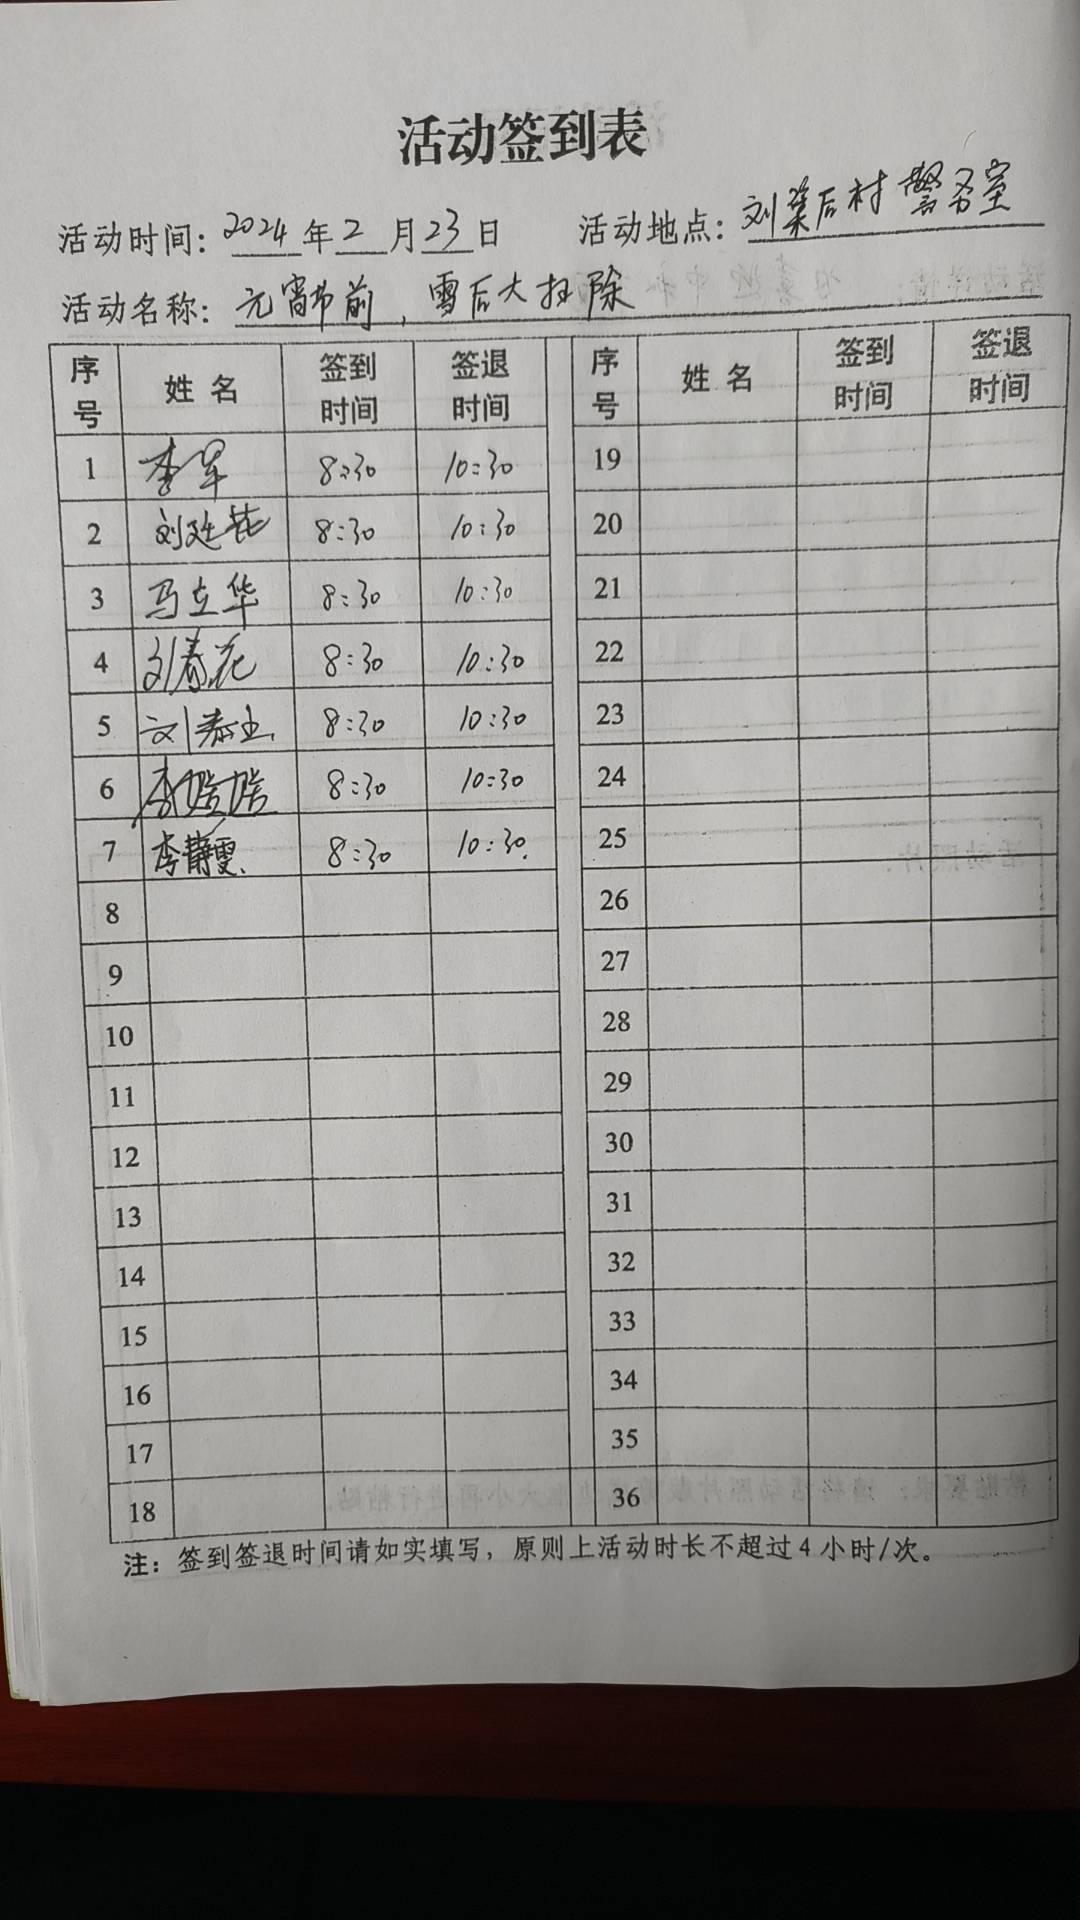 活动签到表
活动时间：2024年2月23日 活动地点：刘菜后村警务室
活动名称：元宵节前，雪后大扫除
序号 姓名 签到时间 签退时间 序号 姓名 签到时间 签退时间
1 李军 8:30 10:30 19
2 刘廷花 8:30 10:30 20
3 马立华 8:30 10:30 21
4 刘春花 8:30 10:30 22
5 刘 8:30 10:30 23
6 李嫦嫦 8:30 10:30 24
7 李静雯 8:30 10:30 25
8 26
9 27
10 28
11 29
12 30
13 31
14 32
15 33
16 34
17 35
18 36
注：签到签退时间请如实填写，原则上活动时长不超过4小时/次。